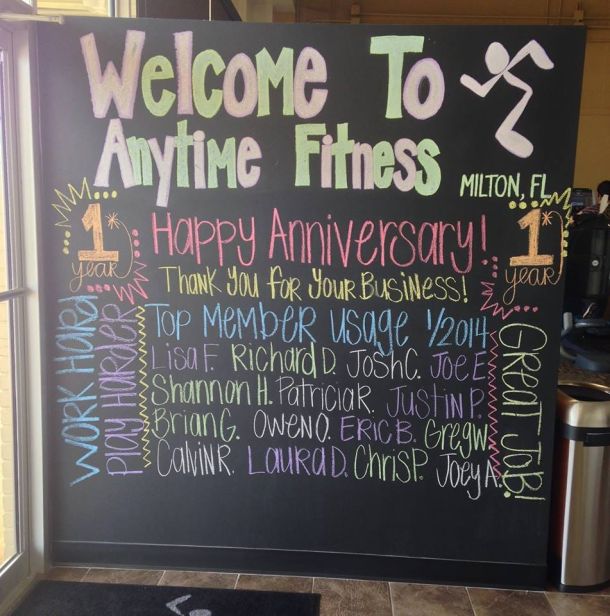 Welcome To
Anytime Fitness
MILTON, FL
1*
year
Happy Anniversary!
1*
year
Thank you for your Business!
Top Member usage 1/2014
Lisa F. Richard D. Josh C. Joe E
Shannon H. Patricia R. Justin P.
Brian G. Owen O. Eric B. Greg W
Calvin R. Laura D. Chris P. Joey A.
WORK HARD
PLAY HARDER
Great Job!